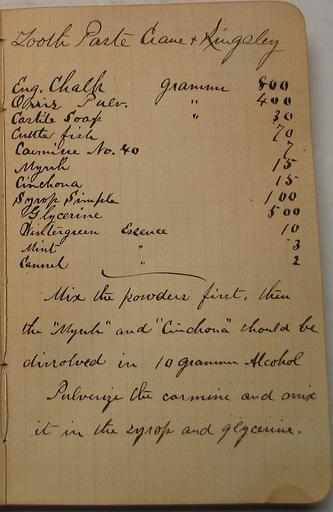 Tooth Paste Crane & Kingsley
Eng. Chalk gramm 800
Orris Pulv. " 400
Castile Soap " 30
Cuttle fish 70
Carmine No. 40 7
Myrrh 15
Cinchona 15
Syrop Simple 100
Glycerine 500
Wintergreen Essence 10
Mint " 3
Cannel " 2
Mix the powders first, then
the "Myrrh" and "Cinchona" should be
dissolved in 10 gramm Alcohol
Pulverize the carmine and mix
it in the syrop and glycerine.